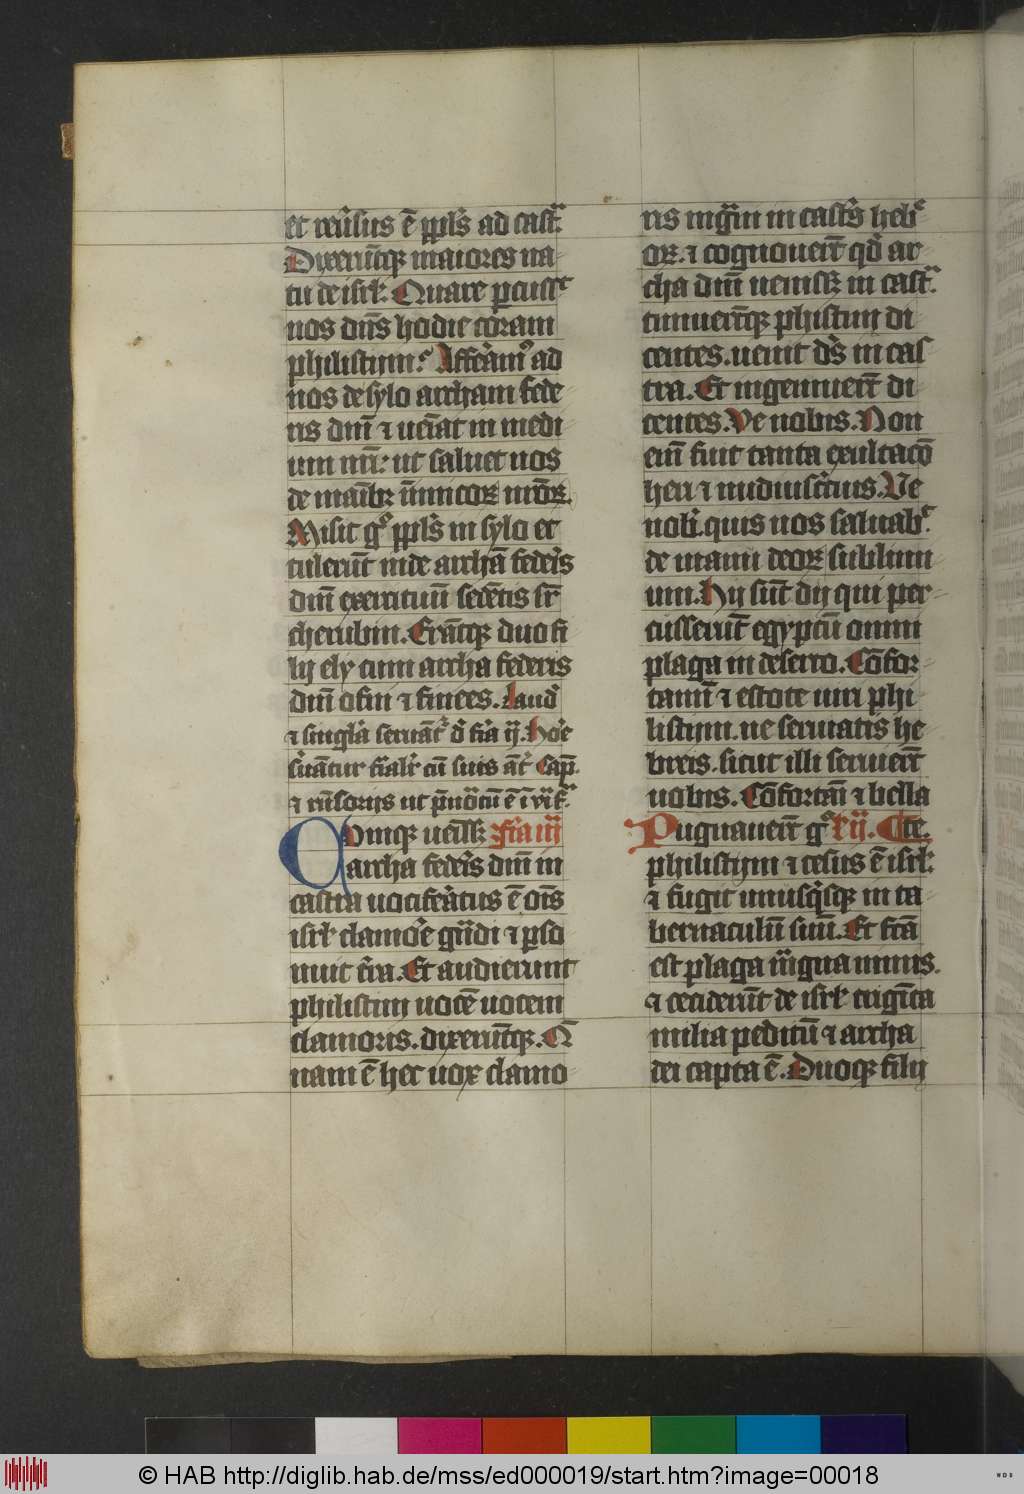 et reu̾sus ē ppl̾s ad cast̾
Dixerūtq; maiores na
tu de isrl̾. Quare ꝑcuss̾
nos dn̄s hodie coram
philistijm? Affeam̾ ad
nos de sylo archam fede
ris dn̄i ⁊ ueīat in medi
um nr̄i: ut saluet nos
de manibꝫ inimicoꝝ nr̄oꝝ.
Misit gͦ ppl̾s in sylo et
tulerūt inde archā feder̾s
dn̄i exercituū sedētis sr̄
cherubin. Erātq; duo fi
lij ely cum archa federis
dn̄i ofni ⁊ finees. Laud̾
⁊ singl̾a seruāt̾ fr̾a ij. hor̾e
su̾antur cū suis ān̄. Cap̄.
⁊ ē ī
Cumq; ueniss; fr̾ia iij
archa feder̾s dn̄i in
castra uociferatus ē om̄s
isrl̾ clamor̾e grādi ⁊ ꝑso
nuit tr̾a. Et audierunt
philistijm uocē uocem
clamoris. dixerūtq;. Q̄
nam ē hec uox clamo
ris magni in castr̾s hebr̾
oꝝ. ⁊ cognouer̄t qd̾ ar
cha dn̄i ueniss; in cast̾.
timuer̄tq; philistijm di
centes. uenit de̾s in cas
tra. Et ingemuer̄t di
centes. Ve nobis. Non
eni̅ fuit tanta exultacō
heri ⁊ nudiusterc̾ius. Ve
nob̾. quis nos saluab̾.
de manu deoꝝ sublimi
um. hij sūt dij qui per
cusserūt egyptū omni
plaga in deserto. Cōfor
tamī ⁊ estote uiri phi
listijm. ne seruiatis he
breis. sicut illi seruier̄t
uobis. Cōfortamī ⁊ bella
Pugnauer̄t gͦ te.
philistijm ⁊ cesus ē isrl̾.
⁊ fugit unusq̾sq; in ta
bernaculū suū. Et fc̄a
est plaga magna nimis.
⁊ ceciderūt de isrl̾ triginta
milia peditū ⁊ archa
dei capta ē. Duoq; filij
© HAB http://diglib.hab.de/mss/ed000019/start.htm?image=00018